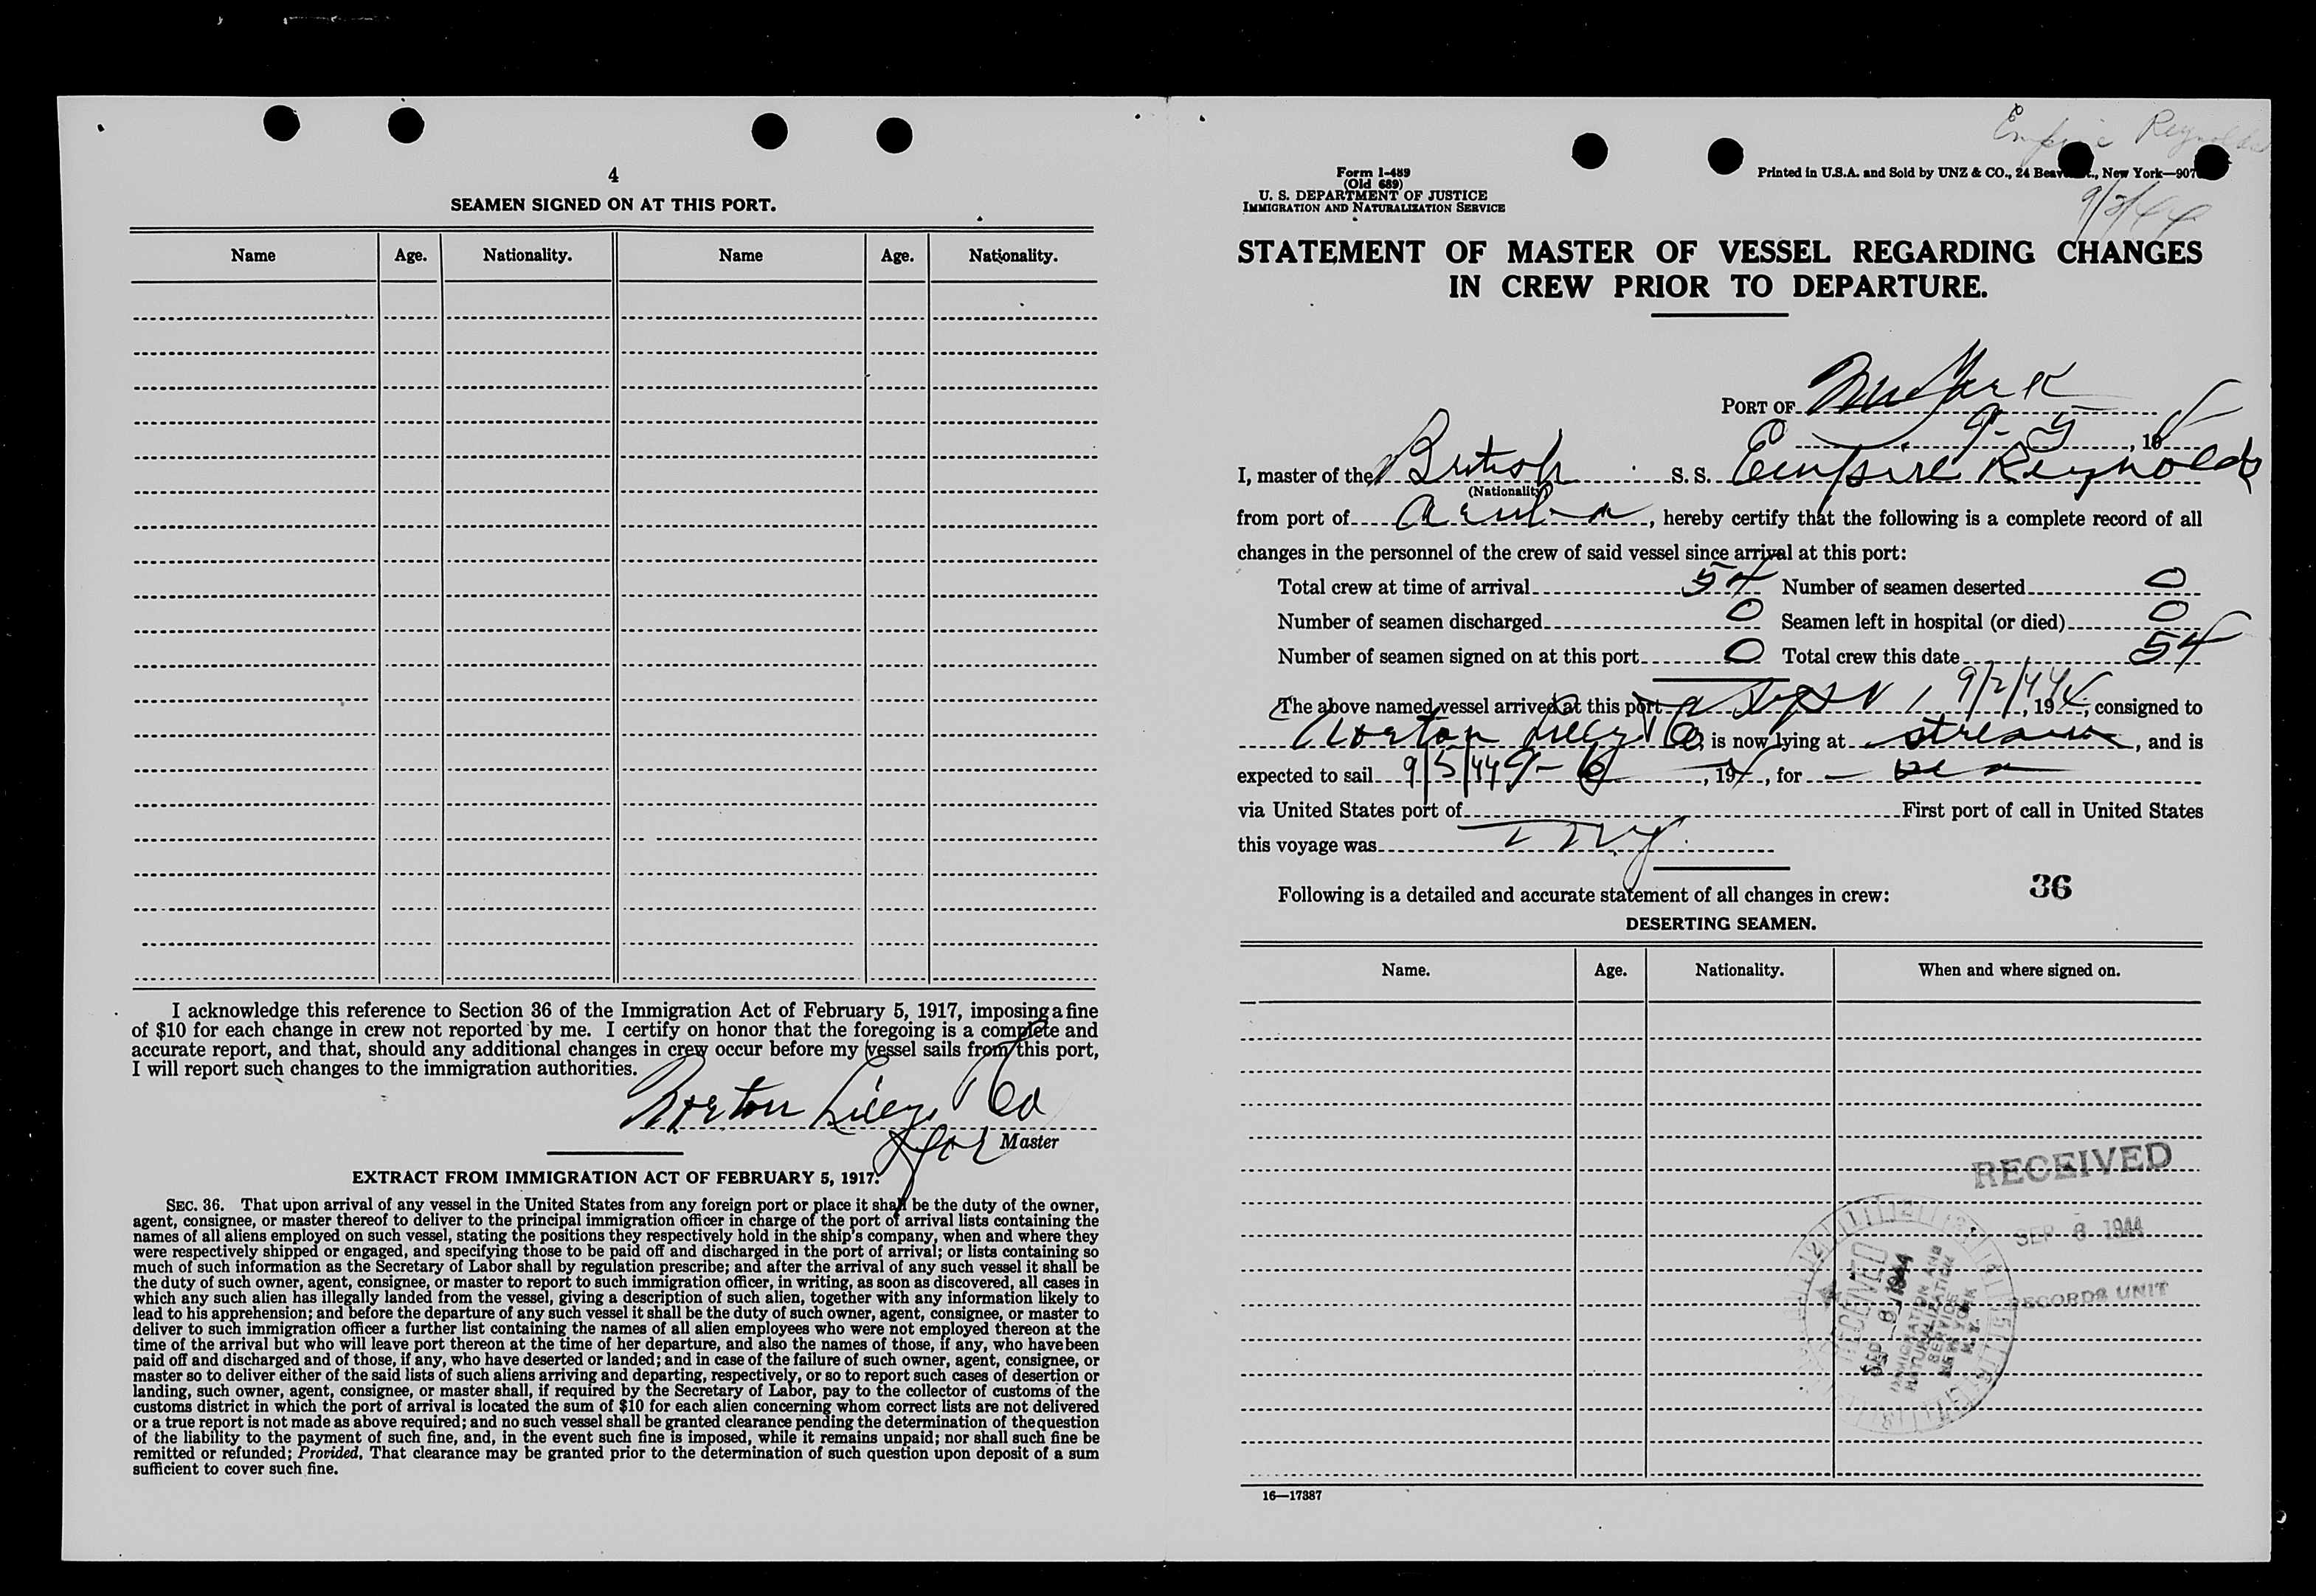 4
SEAMEN SIGNED ON AT THIS PORT.
Name Age. Nationality. Name Age. Nationality.
I acknowledge this reference to Section 36 of the Immigration Act of February 5, 1917, imposing a fine
of $10 for each change in crew not reported by me. I certify on honor that the foregoing is a complete and
accurate report, and that, should any additional changes in crew occur before my vessel sails from this port,
I will report such changes to the immigration authorities.
Norton Lilly & Co
for Master
EXTRACT FROM IMMIGRATION ACT OF FEBRUARY 5, 1917.
SEC. 36. That upon arrival of any vessel in the United States from any foreign port or place it shall be the duty of the owner,
agent, consignee, or master thereof to deliver to the principal immigration officer in charge of the port of arrival lists containing the
names of all aliens employed on such vessel, stating the positions they respectively hold in the ship's company, when and where they
were respectively shipped or engaged, and specifying those to be paid off and discharged in the port of arrival; or lists containing so
much of such information as the Secretary of Labor shall by regulation prescribe; and after the arrival of any such vessel it shall be
the duty of such owner, agent, consignee, or master to report to such immigration officer, in writing, as soon as discovered, all cases in
which any such alien has illegally landed from the vessel, giving a description of such alien, together with any information likely to
lead to his apprehension; and before the departure of any such vessel it shall be the duty of such owner, agent, consignee, or master to
deliver to such immigration officer a further list containing the names of all alien employees who were not employed thereon at the
time of the arrival but who will leave port thereon at the time of her departure, and also the names of those, if any, who have been
paid off and discharged and of those, if any, who have deserted or landed; and in case of the failure of such owner, agent, consignee, or
master so to deliver either of the said lists of such aliens arriving and departing, respectively, or so to report such cases of desertion or
landing, such owner, agent, consignee, or master shall, if required by the Secretary of Labor, pay to the collector of customs of the
customs district in which the port of arrival is located the sum of $10 for each alien concerning whom correct lists are not delivered
or a true report is not made as above required; and no such vessel shall be granted clearance pending the determination of the question
of the liability to the payment of such fine, and, in the event such fine is imposed, while it remains unpaid; nor shall such fine be
remitted or refunded; Provided, That clearance may be granted prior to the determination of such question upon deposit of a sum
sufficient to cover such fine.
Empire Reynolds
Form I-489
(Old 689)
U. S. DEPARTMENT OF JUSTICE
IMMIGRATION AND NATURALIZATION SERVICE
Printed in U.S.A. and Sold by UNZ & CO., 24 Beaver St., New York—907
9/2/44
STATEMENT OF MASTER OF VESSEL REGARDING CHANGES
IN CREW PRIOR TO DEPARTURE.
PORT OF New York
9-5, 19
I, master of the British S. S. Empire Reynolds
(Nationality)
from port of Aruba, hereby certify that the following is a complete record of all
changes in the personnel of the crew of said vessel since arrival at this port:
Total crew at time of arrival 54 Number of seamen deserted 0
Number of seamen discharged 0 Seamen left in hospital (or died) 0
Number of seamen signed on at this port 0 Total crew this date 54
The above named vessel arrived at this port 9/2/44, 194, consigned to
Norton Lilly & Co, is now lying at stream, and is
expected to sail 9/5/44 9-6, 194, for sea
via United States port of First port of call in United States
this voyage was NY
Following is a detailed and accurate statement of all changes in crew: 36
DESERTING SEAMEN.
Name. Age. Nationality. When and where signed on.
RECEIVED
SEP 8 1944
RECORDS UNIT
RECEIVED
SEP 6 1944
IMMIGRATION AND
NATURALIZATION
SERVICE
NEW YORK
N.Y.
16—17387